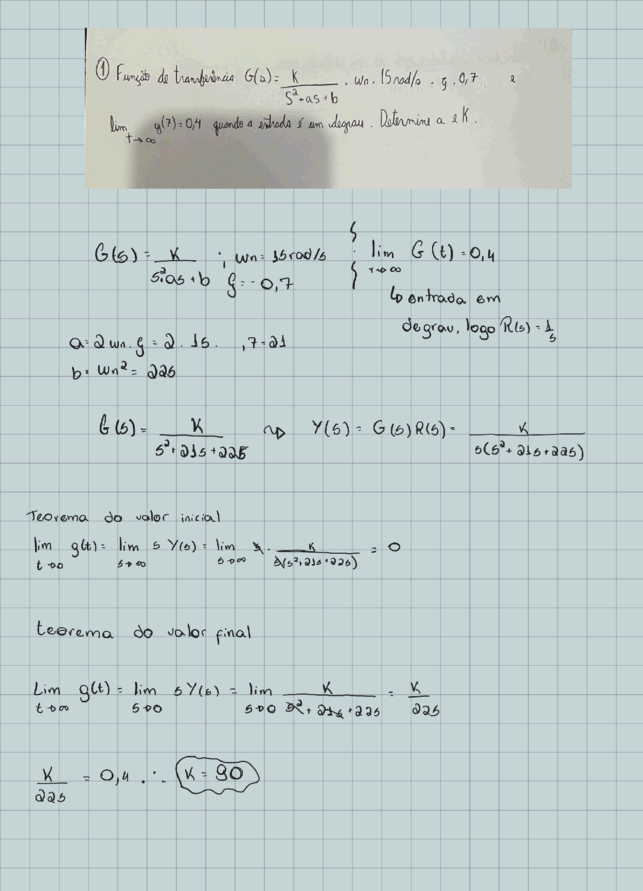 ① Função de transferência G(s) = K / (s² + as + b) . wn. 15 rad/s . ξ . 0,7 e
lim t→∞ y(7) = 0,4 quando a entrada é um degrau. Determine a e K.
G(s) = K / (s² + as + b) ; wn = 15 rad/s ξ = 0,7
lim t→∞ G(t) = 0,4
↳ entrada em
degrau, logo R(s) = 1/s
a = 2 wn . ξ = 2 . 15 . ,7 = 21
b = wn² = 225
G(s) = K / (s² + 21s + 225) ⇝ Y(s) = G(s) R(s) = K / (s(s² + 21s + 225))
Teorema do valor inicial
lim t→0 g(t) = lim s→∞ s Y(s) = lim s→∞ s . K / (s(s² + 21s + 225)) = 0
teorema do valor final
Lim t→∞ g(t) = lim s→0 s Y(s) = lim s→0 K / (s² + 21s + 225) = K / 225
K / 225 = 0,4 ∴ K = 90